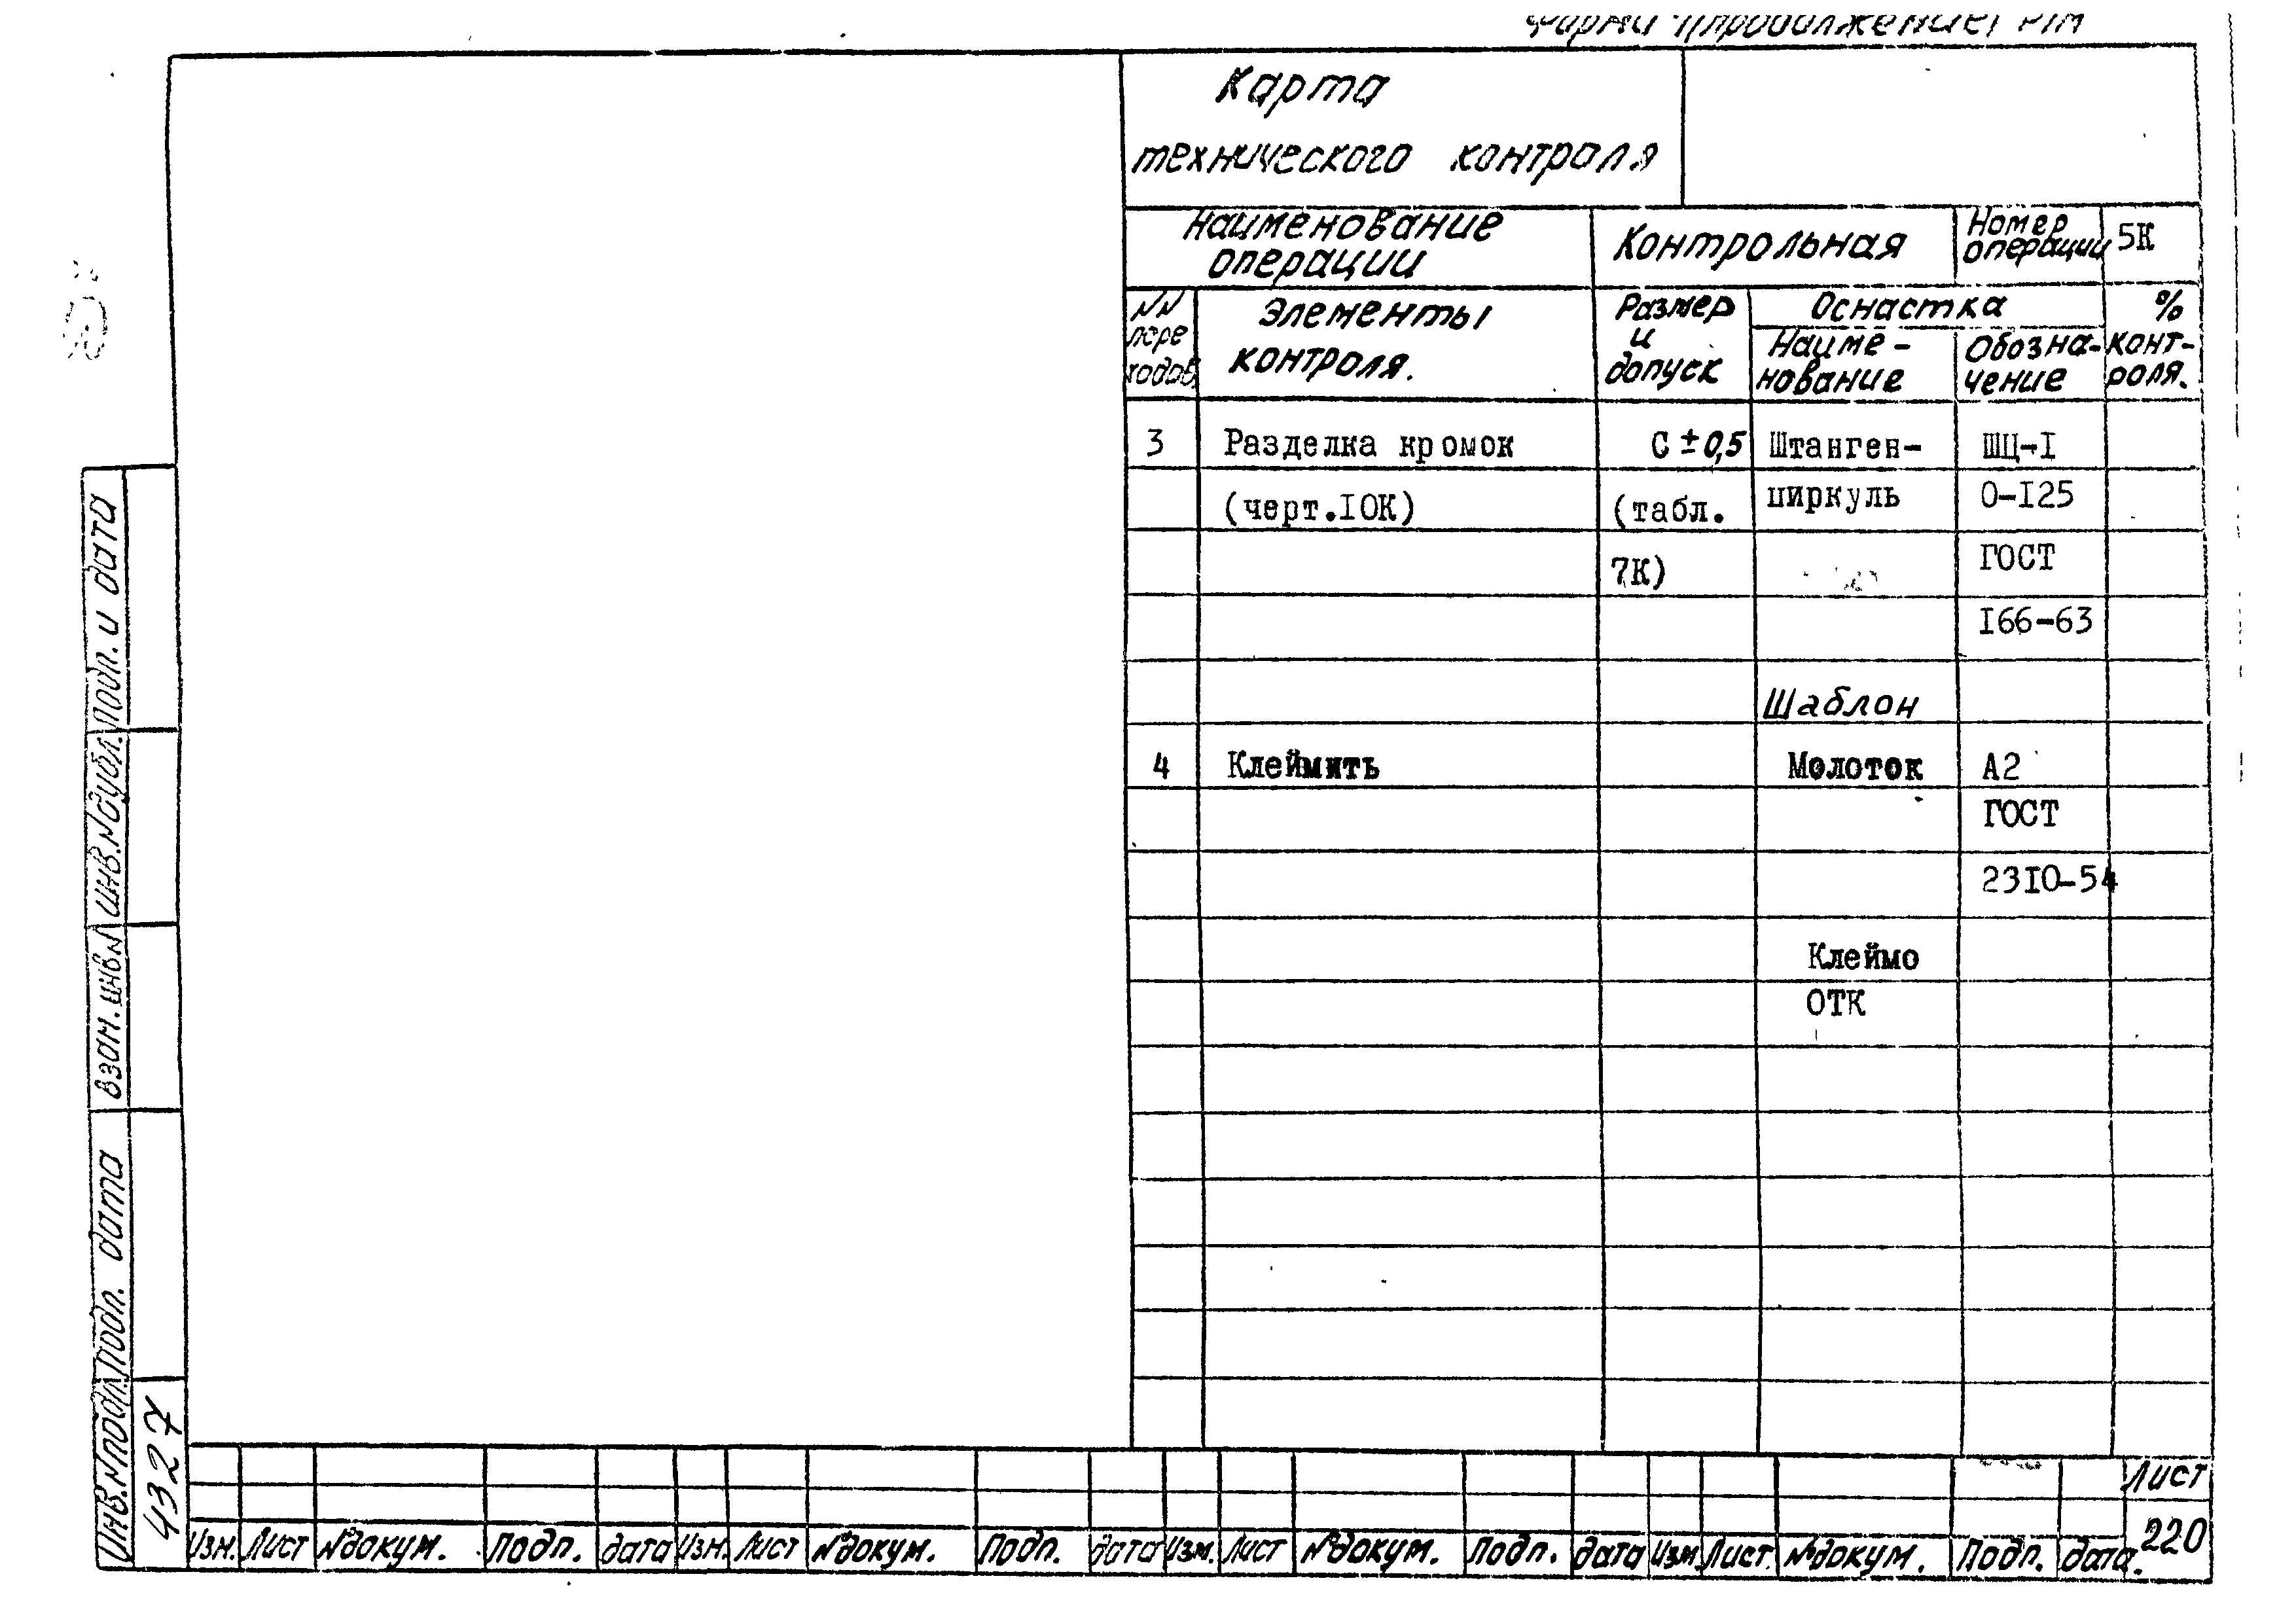 Карта
технического контроля
Наименование
операции
Контрольная
Номер
операции
5К
NN
пере
ходов
Элементы
контроля.
Размер
и
допуск
Оснастка
Наиме-
нование
Обозна-
чение
%
конт-
роля.
3 Разделка кромок С ±0,5 Штанген- ШЦ-I
(черт.IOK) (табл. циркуль 0-I25
7К) ГОСТ
I66-63
Шаблон
4 Клеймить Молоток А2
ГОСТ
23I0-54
Клеймо
ОТК
Подп. и дата
Инв.N дубл.
Взам.инв.N
Подп. дата
Инв.N подл.
4327
Лист
220
Изм. Лист №докум. Подп. дата Изм. Лист №докум. Подп. дата Изм. Лист №докум. Подп. дата Изм. Лист. №докум. Подп. дата.